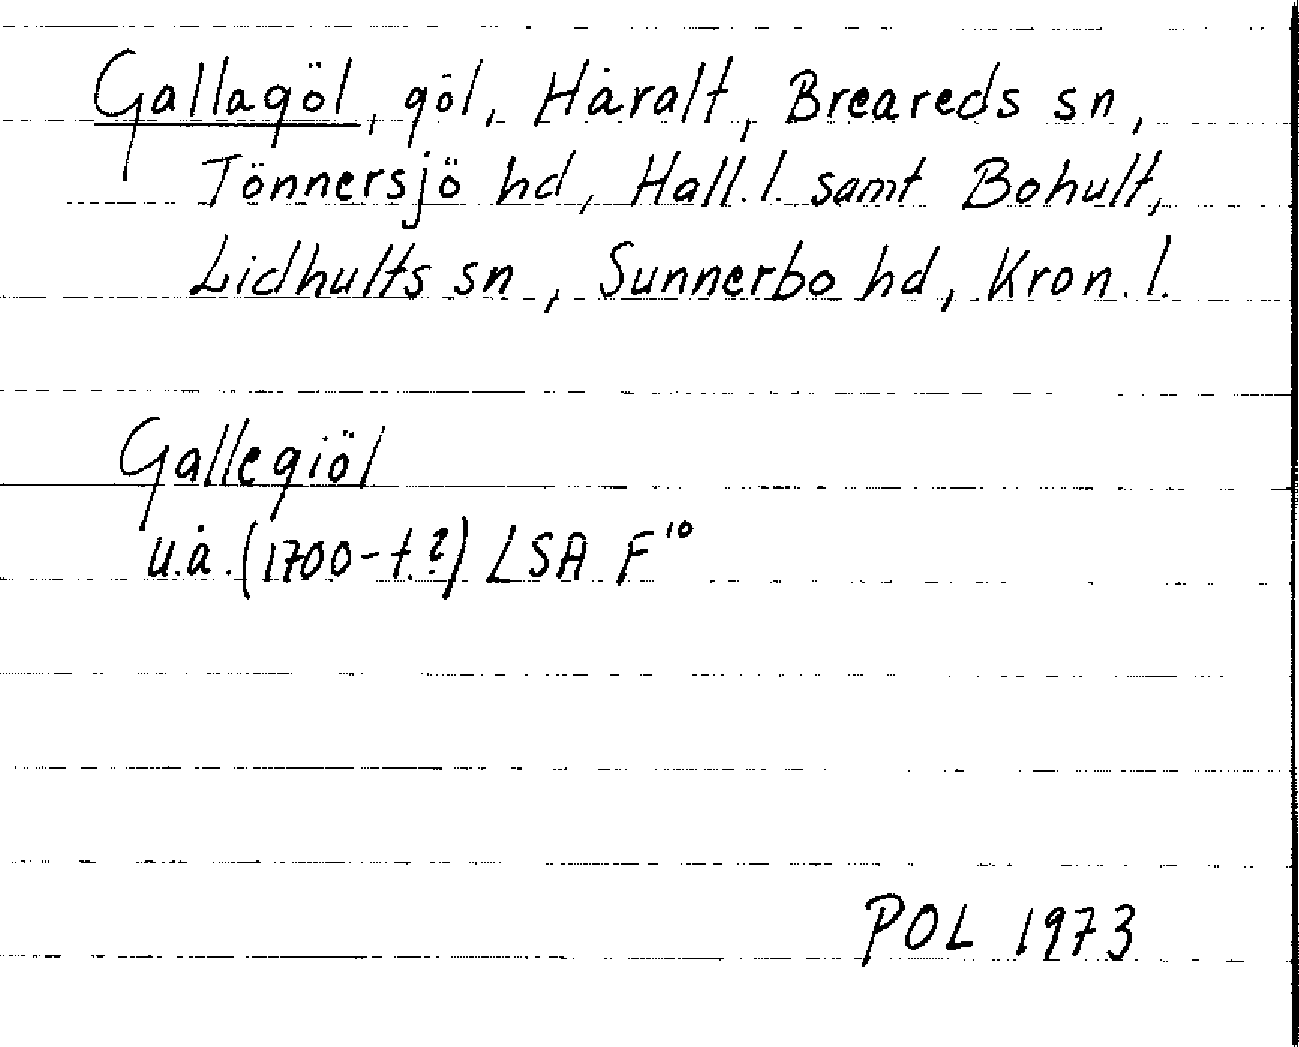 Gallagöl, göl, Håralt, Breareds sn,
Tönnersjö hd, Hall. l. samt Bohult,
Lidhults sn, Sunnerbo hd, Kron. l.
Gallegiöl
u.å. (1700-t.?) LSA F¹⁰
POL 1973